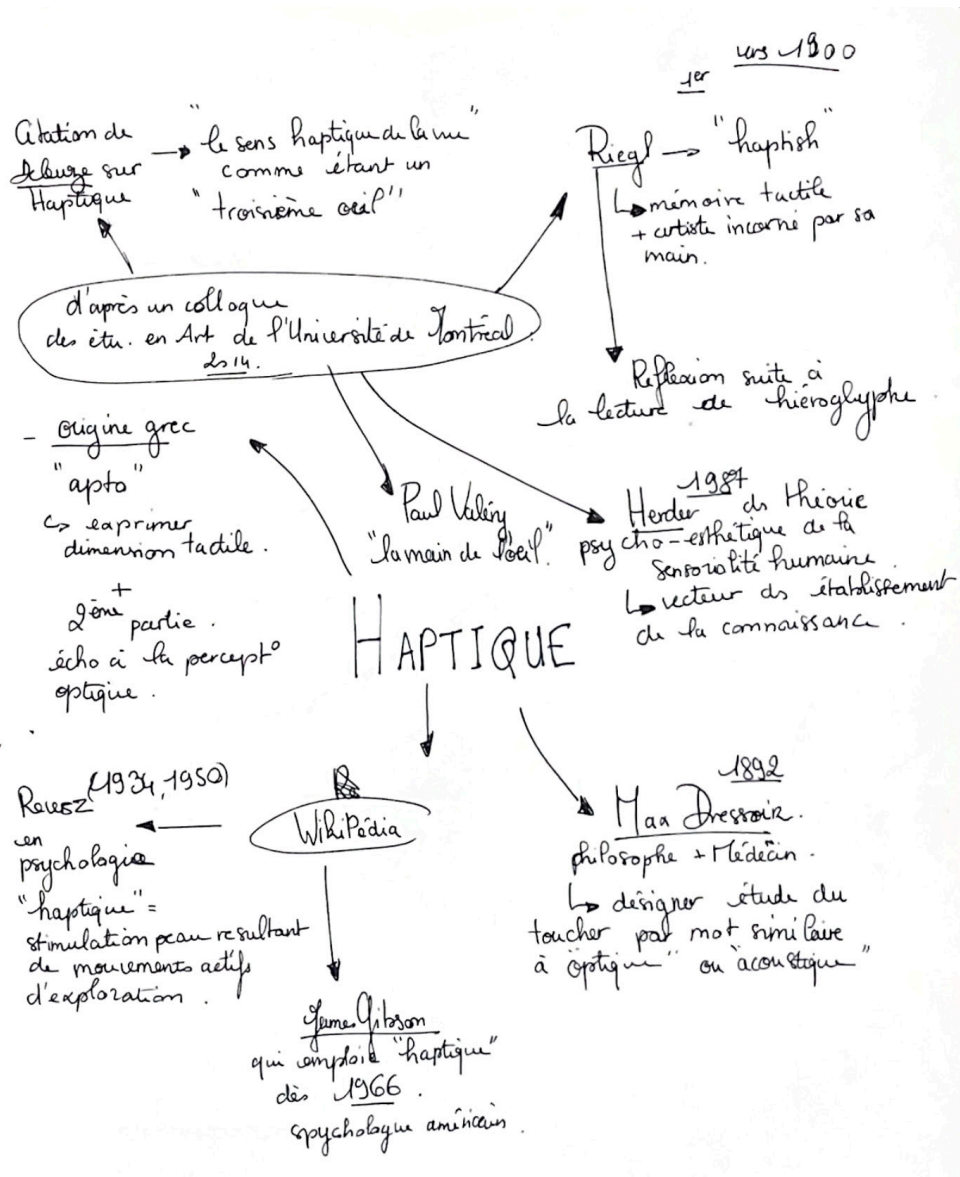 vers 1900
1er
Citation de
Deleuze sur
Haptique
"le sens haptique de la vue"
comme étant un
"troisième œil"
Riegl → "haptish"
↳ mémoire tactile
+ artiste incarné par sa
main.
d'après un colloque
des étu. en Art de l'Université de Montréal.
2014.
Réflexion suite à
la lecture de hiéroglyphe.
- origine grec
"apto"
↳ exprimer
dimension tactile.
+
2ème partie.
écho à la percept°
optique.
Paul Valéry
"la main de l'œil".
1987
Herder ds théorie
psycho-esthétique de la
sensorialité humaine.
↳ vecteur ds établissement
de la connaissance.
HAPTIQUE
Revesz (1934, 1950)
en
psychologie
"haptique" =
stimulation peau resultant
de mouvements actifs
d'exploration.
WikiPédia
1892
Max Dressoir.
philosophe + Médecin.
↳ désigner étude du
toucher par mot similaire
à "optique" ou "acoustique"
James Gibson
qui emploie "haptique"
dès 1966.
spychologue américain.